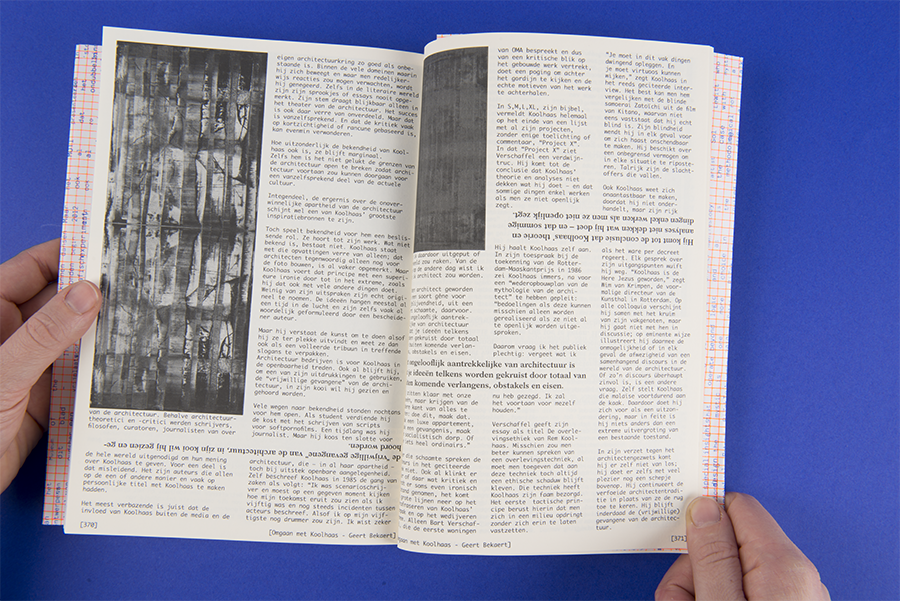 van de architectuur. Behalve architectuur-
theoretici en -critici werden schrijvers,
filosofen, curatoren, journalisten van over
de hele wereld uitgenodigd om hun mening
over Koolhaas te geven. Voor een deel is
dat misleidend. Het zijn auteurs die allen
op de een of andere manier en vaak op
persoonlijke titel met Koolhaas te maken
hadden.
Het meest verbazende is juist dat de
invloed van Koolhaas buiten de media en de
eigen architectuurkring zo goed als onbe-
staande is. Binnen de vele domeinen waarin
hij zich beweegt en waar men redelijker-
wijs reacties zou mogen verwachten, wordt
hij genegeerd. Zelfs in de literaire wereld
zijn zijn sprookjes of essays nooit opge-
merkt. Zijn stem draagt blijkbaar alleen in
het theater van de architectuur. Het succes
is ook daar verre van onverdeeld. Maar dat
is vanzelfsprekend. En dat de kritiek vaak
op kortzichtigheid of rancune gebaseerd is,
kan evenmin verwonderen.
Hoe uitzonderlijk de bekendheid van Kool-
haas ook is, ze blijft marginaal.
Zelfs hem is het niet gelukt de grenzen van
de architectuur open te breken zodat archi-
tectuur voortaan zou kunnen doorgaan voor
een vanzelfsprekend deel van de actuele
cultuur.
Integendeel, de ergernis over de onover-
winnelijke apartheid van de architectuur
schijnt wel een van Koolhaas' grootste
inspiratiebronnen te zijn.
Toch speelt bekendheid voor hem een beslis-
sende rol. Ze hoort tot zijn werk. Wat niet
bekend is, bestaat niet. Koolhaas staat
met die opvattingen verre van alleen; dat
architecten tegenwoordig alleen nog voor
de foto bouwen, is al vaker opgemerkt. Maar
Koolhaas voert dat principe met een superi-
eure ironie door tot in het extreme, zoals
hij dat ook met vele andere dingen doet.
Weinig van zijn uitspraken zijn echt origi-
neel te noemen. De ideeën hangen meestal al
een tijd in de lucht en zijn zelfs vaak al
woordelijk geformuleerd door een bescheide-
ner auteur.
Maar hij verstaat de kunst om te doen alsof
hij ze ter plekke uitvindt en weet ze dan
ook als een volleerde tribuun in treffende
slogans te verpakken.
Architectuur bedrijven is voor Koolhaas in
de openbaarheid treden. Ook al blijft hij,
om een van zijn uitdrukkingen te gebruiken,
de "vrijwillige gevangene" van de archi-
tectuur, in zijn kooi wil hij gezien en
gehoord worden.
Vele wegen naar bekendheid stonden nochtans
voor hem open. Als student verdiende hij
de kost met het schrijven van scripts
voor softpornofilms. Een tijdlang was hij
journalist. Maar hij koos ten slotte voor
de "vrijwillige gevangene" van de architectuur, in zijn kooi wil hij gezien en ge-
hoord worden.
architectuur, die - in al haar apartheid -
toch bij uitstek openbare aangelegenheid.
Zelf beschreef Koolhaas in 1985 de gang van
zaken als volgt: "Ik was scenarioschrij-
ver en meest op een gegeven moment kijken
hoe mijn toekomst eruit zou zien als ik
vijftig was en nog steeds incidenten tussen
acteurs beschreef. Alsof ik op mijn vijf-
tigste nog drummer zou zijn. Ik wist zeker
[370]
[Omgaan met Koolhaas - Geert Bekaert]
daardoor uitgeput of
zou raken. Van de
de andere dag wist ik
architect zou worden.
architect geworden
soort gêne voor
uit een
schaamte, daarvoor.
aantrek-
van architectuur
je ideeën telkens
gekruist door totaal
komende verlan-
obstakels en eisen.
ongelooflijk aantrekkelijke van architectuur is
je ideeën telkens worden gekruist door totaal van
komende verlangens, obstakels en eisen.
klaar met onze
maar krijgen van de
kant van alles te
doe dit, maak dat,
luxe appartement,
een gevangenis, maak
socialistisch dorp. Of
heel ordinairs."
schaamte spreken de
in het geciteerde
Ook al klinkt er
of daar wat kritiek en
er soms even ironisch
genomen, het komt
lijnen neer op het
van Koolhaas'
en op het wedijveren
Alleen Bart Verschaf-
de eerste woningen
van OMA bespreekt en dus
van een kritische blik op
het gebouwde werk vertrekt,
doet een poging om achter
het gordijn te kijken en de
echte motieven van het werk
te achterhalen.
In S,M,L,XL, zijn bijbel,
vermeldt Koolhaas helemaal
op het einde van een lijst
met al zijn projecten,
zonder enige toelichting of
commentaar, "Project X".
In dat "Project X" ziet
Verschaffel een verdwijn-
truc. Hij komt tot de
conclusie dat Koolhaas'
theorie en analyses niet
dekken wat hij doet - en dat
sommige dingen enkel werken
als men ze niet openlijk
zegt.
Hij komt tot de conclusie dat Koolhaas' theorie en
analyses niet dekken wat hij doet – en dat sommige
dingen enkel werken als men ze niet openlijk zegt.
Hij haalt Koolhaas zelf aan.
In zijn toespraak bij de
toekenning van de Rotter-
dam-Maaskantprijs in 1986
had Koolhaas immers, na voor
een "wederopbouwplan van de
mythologie van de archi-
tect" te hebben gepleit:
"bedoelingen als deze kunnen
misschien alleen worden
gerealiseerd als ze niet al
te openlijk worden uitge-
sproken.
Daarom vraag ik het publiek
plechtig: vergeet wat ik
nu heb gezegd. Ik zal
het voortaan voor mezelf
houden."
Verschaffel geeft zijn
essay als titel De overle-
vingsethiek van Rem Kool-
haas. Misschien zou men
beter kunnen spreken van
een overlevingstechniek, al
moet men toegeven dat aan
deze techniek toch altijd
een ethische schaduw blijft
kleven. Die techniek heeft
Koolhaas zijn faam bezorgd.
Het eerste tactische prin-
cipe berust hierin dat men
zich in een milieu opdringt
zonder zich erin te laten
vastzetten.
"Je moet in dit vak dingen
dwingend opleggen. En
je moet virtuoos kunnen
wijken," zegt Koolhaas in
het reeds geciteerde inter-
view. Het best kan men hem
vergelijken met de blinde
samoerai Zatoichi uit de film
van Kitano, waarvan niet
eens vaststaat dat hij echt
blind is. Zijn blindheid
wendt hij in elk geval voor
om zich haast onschendbaar
te maken. Hij beschikt over
een ongebreid vermogen om
in elke situatie te riposte-
ren. Talrijk zijn de slacht-
offers die vallen.
Ook Koolhaas weet zich
onaantastbaar te maken,
doordat hij niet onder-
handelt, maar zijn rijk
als het ware per decreet
regeert. Elk gesprek over
zijn uitgangspunten wuift
hij weg. "Koolhaas is de
Here Jezus geworden," zegt
Wim van Krimpen, de voor-
malige directeur van de
Kunsthal in Rotterdam. Op
alle colloquia verschijnt
hij samen met het kruim
van zijn vakgenoten, maar
hij gaat niet met hen in
discussie; op eminente wijze
illustreert hij daarmee de
onmogelijkheid of in elk
geval de afwezigheid van een
samenhangend discours in de
wereld van de architectuur.
Of zo'n discours überhaupt
zinvol is, is een andere
vraag. Zelf stelt Koolhaas
die malaise voortdurend aan
de kaak. Daardoor doet hij
zich voor als een uitzon-
dering, maar in feite is
hij niets anders dan een
extreme uitvergroting van
een bestaande toestand.
In zijn verzet tegen het
architectengezwets komt
hij er zelf niet van los;
hij doet er zelfs met veel
plezier nog een schepje
bovenop. Hij continueert de
verfoeide architectentradi-
tie in plaats van ze de rug
toe te keren. Hij blijft
inderdaad de (vrijwillige)
gevangene van de architec-
tuur.
[Omgaan met Koolhaas - Geert Bekaert]
[371]